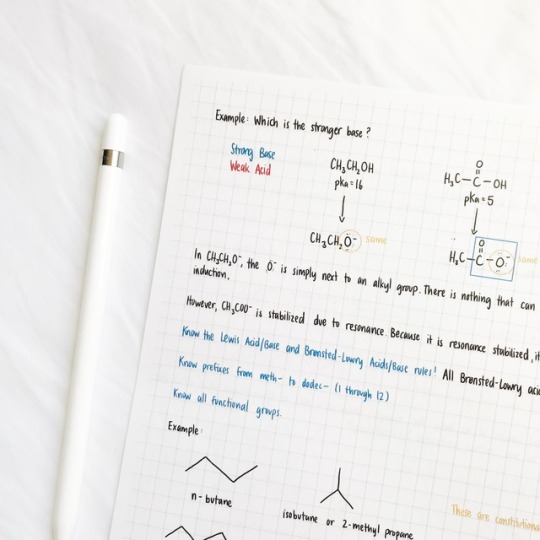 Example: Which is the stronger base?
Strong Base
Weak Acid
CH₃CH₂OH
pka = 16
CH₃CH₂Ö⁻ same
O
H₃C–C–OH
pka = 5
O
H₃C–C–O⁻ same
In CH₃CH₂O⁻, the Ö⁻ is simply next to an alkyl group. There is nothing that can
induction.
However, CH₃COO⁻ is stabilized due to resonance. Because it is resonance stabilized, it
Know the Lewis Acid/Base and Brønsted-Lowry Acids/Base rules! All Brønsted-Lowry
Know prefixes from meth- to dodec- (1 through 12)
Know all functional groups.
Example:
n-butane
isobutane or 2-methyl propane
These are